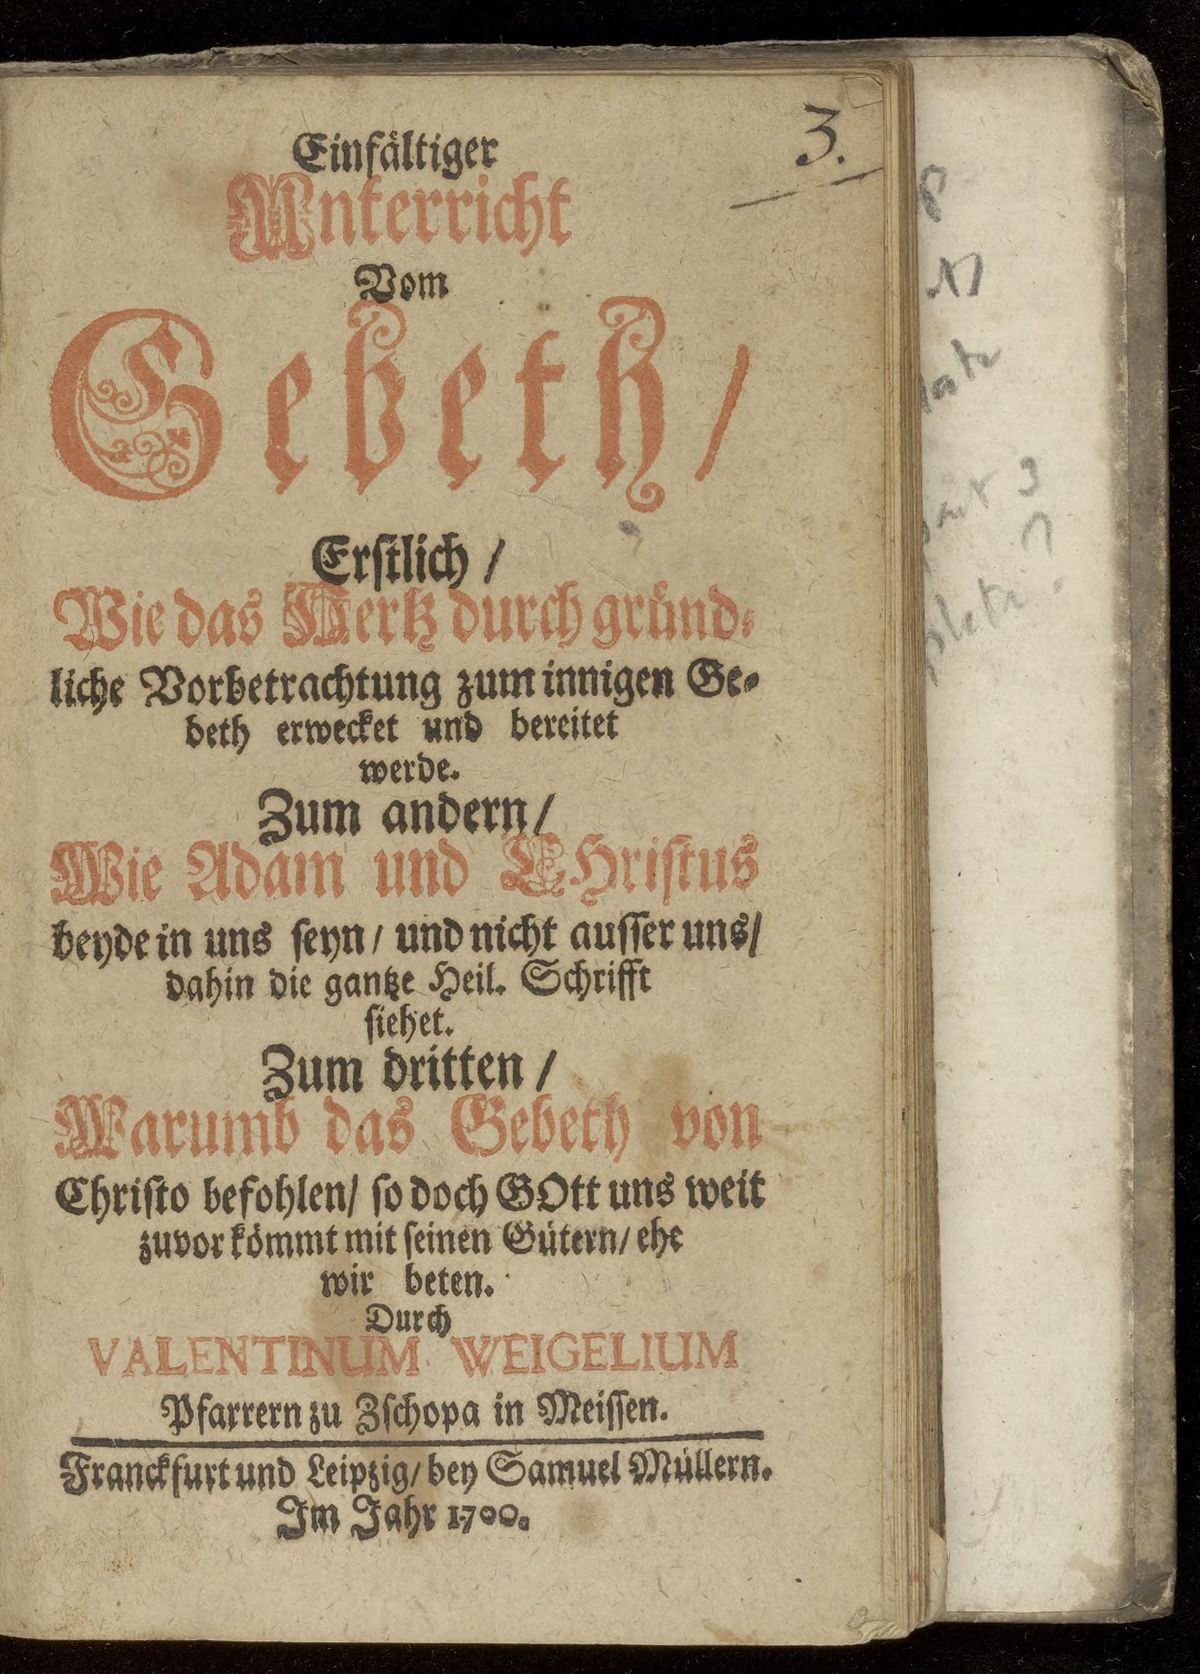 3.
Einfältiger
Unterricht
Vom
Gebeth/
Erstlich/
Wie das Hertz durch gründ-
liche Vorbetrachtung zum innigen Ge-
beth erwecket und bereitet
werde.
Zum andern/
Wie Adam und CHristus
beyde in uns seyn/ und nicht ausser uns/
dahin die gantze Heil. Schrifft
siehet.
Zum dritten/
Warumb das Gebeth von
Christo befohlen/ so doch GOtt uns weit
zuvor kömmt mit seinen Gütern/ ehe
wir beten.
Durch
VALENTINUM WEIGELIUM
Pfarrern zu Zschopa in Meissen.
Franckfurt und Leipzig/ bey Samuel Müllern.
Im Jahr 1700.